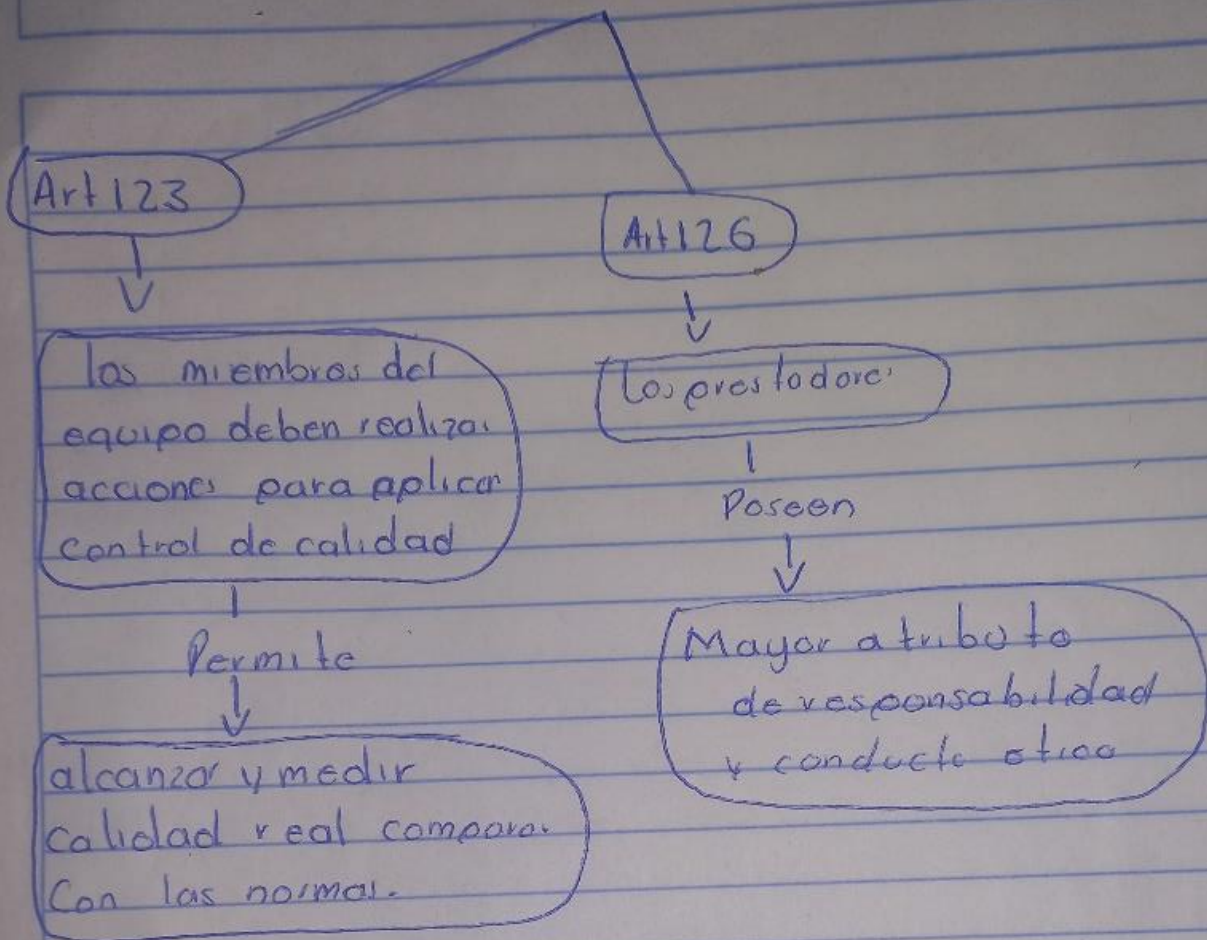 Art 123
los miembros del
equipo deben realizar
acciones para aplicar
control de calidad
Permite
alcanzar y medir
calidad real comparar
Con las normas.
Art 126
Los prestadores
Poseen
Mayor atributo
de responsabilidad
y conducta etica